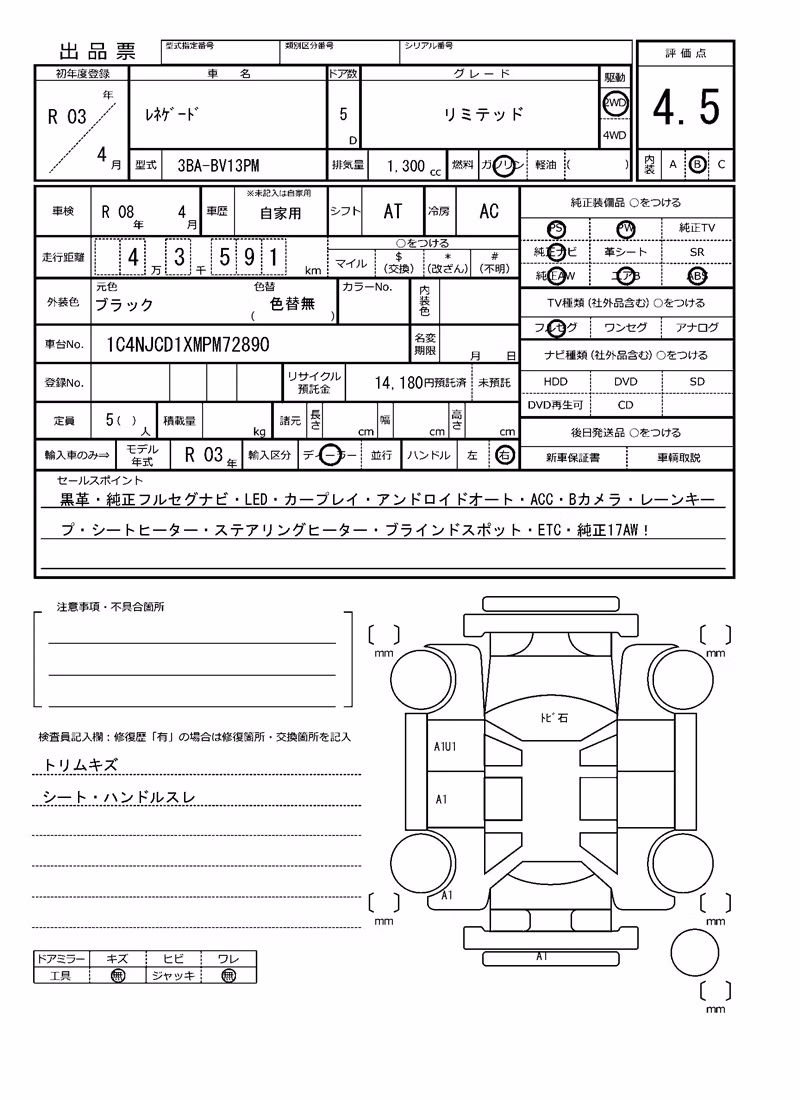 出品票 型式指定番号 類別区分番号 シリアル番号 評価点
初年度登録 車名 ドア数 グレード 駆動
年 R 03 4月 ﾚﾈｹﾞｰﾄﾞ 5 D リミテッド 2WD 4WD 4.5
型式 3BA-BV13PM 排気量 1,300 cc 燃料 ガソリン 軽油 ( ) 内装 A B C
車検 R 08年 4月 車歴 ※未記入は自家用 自家用 シフト AT 冷房 AC
純正装備品 ○をつける
PS PW 純正TV
純正ナビ 革シート SR
純正AW エアB ABS
走行距離 4万 3千 591 km ○をつける
マイル $(交換) *(改ざん) #(不明)
外装色 元色 ブラック 色替 ( 色替無 ) カラーNo. 内装色
TV種類(社外品含む)○をつける
フルセグ ワンセグ アナログ
車台No. 1C4NJCD1XMPM72890 名変期限 月 日
ナビ種類(社外品含む)○をつける
登録No. リサイクル預託金 14,180円預託済 未預託
HDD DVD SD
DVD再生可 CD
定員 5( )人 積載量 kg 諸元 長さ cm 幅 cm 高さ cm
後日発送品 ○をつける
輸入車のみ⇒ モデル年式 R 03年 輸入区分 ディーラー 並行 ハンドル 左 右
新車保証書 車輌取説
セールスポイント
黒革・純正フルセグナビ・LED・カープレイ・アンドロイドオート・ACC・Bカメラ・レーンキー
プ・シートヒーター・ステアリングヒーター・ブラインドスポット・ETC・純正17AW！
注意事項・不具合箇所
検査員記入欄：修復歴「有」の場合は修復箇所・交換箇所を記入
トリムキズ
シート・ハンドルスレ
ドアミラー キズ ヒビ ワレ
工具 無 ジャッキ 無
mm mm
ﾄﾋﾞ石
A1U1
A1
A1
mm mm
A1
mm